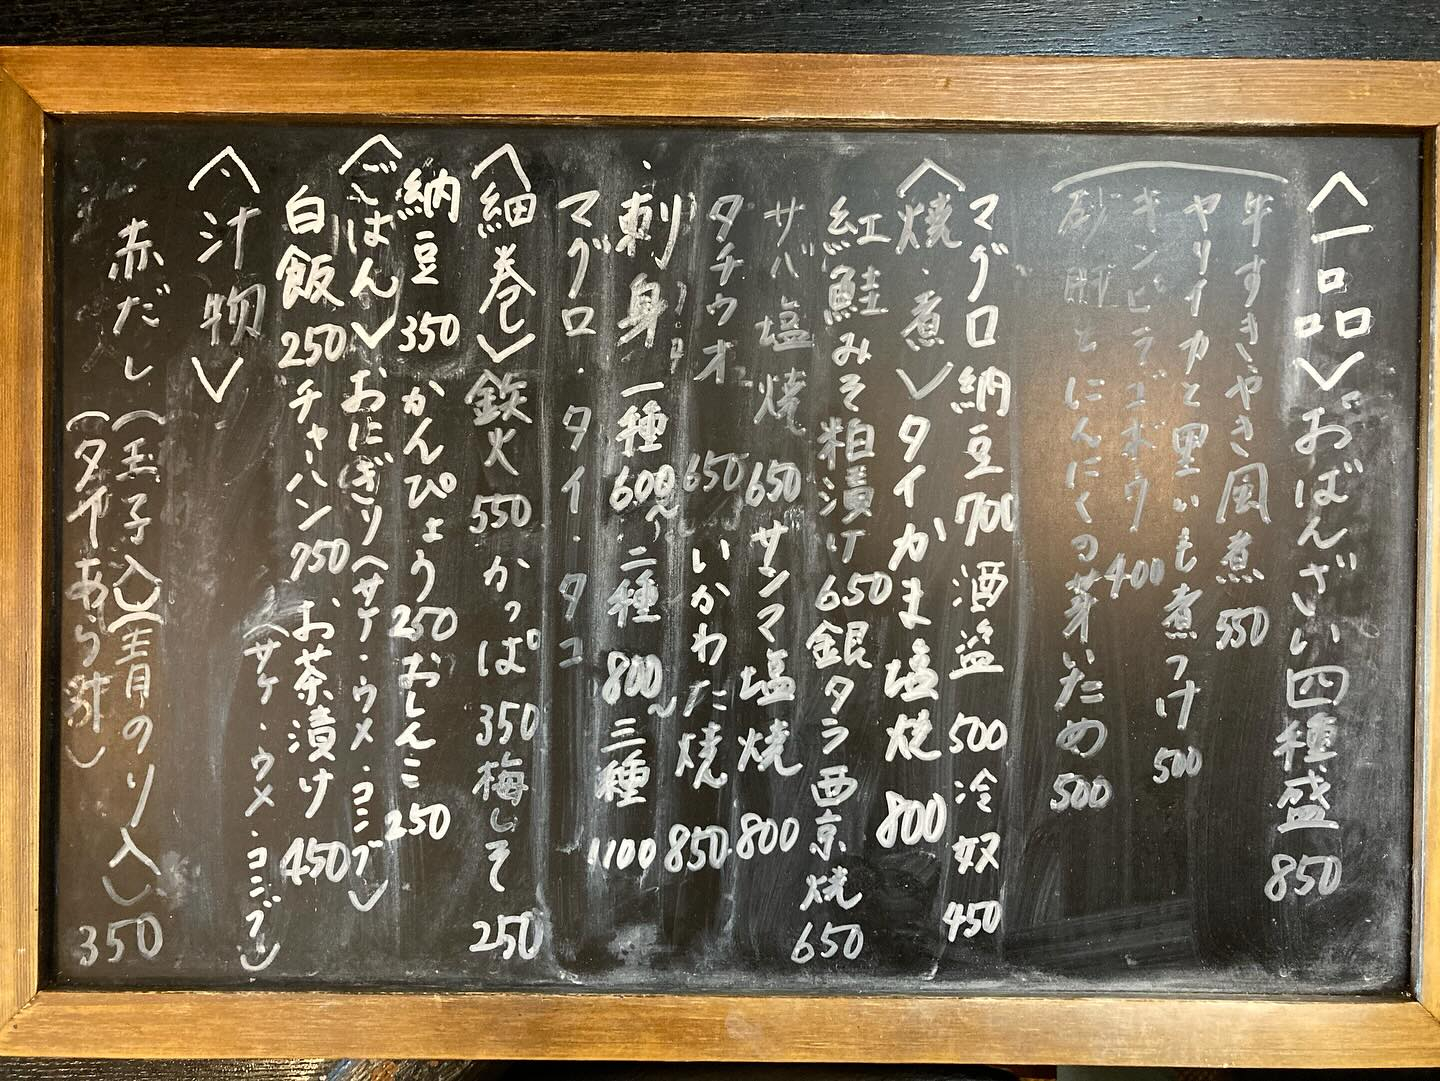 〈一品〉おばんざい四種盛 850
牛すきやき風煮 550
ヤリイカと里いも煮つけ 500
キンピラゴボウ 400
砂肝とにんにくの芽いため 500
マグロ納豆 700 酒盗 500 冷奴 450
〈焼・煮〉タイかま塩焼 800
紅鮭みそ粕漬け 650 銀ダラ西京焼 650
サバ塩焼 650 サンマ塩焼 800
タチウオ 650 いかわた焼 850
刺身 一種 600〜 二種 800〜 三種 1100
マグロ・タイ・タコ
〈細巻〉鉄火 550 かっぱ 350 梅しそ 250
納豆 350 かんぴょう 250 おしんこ 250
〈ごはん〉おにぎり(サケ・ウメ・コンブ)
白飯 250 チャーハン 750 お茶漬け 450
(サケ・ウメ・コンブ)
〈汁物〉
赤だし(玉子入)(青のり入) 350
(タイあら汁)